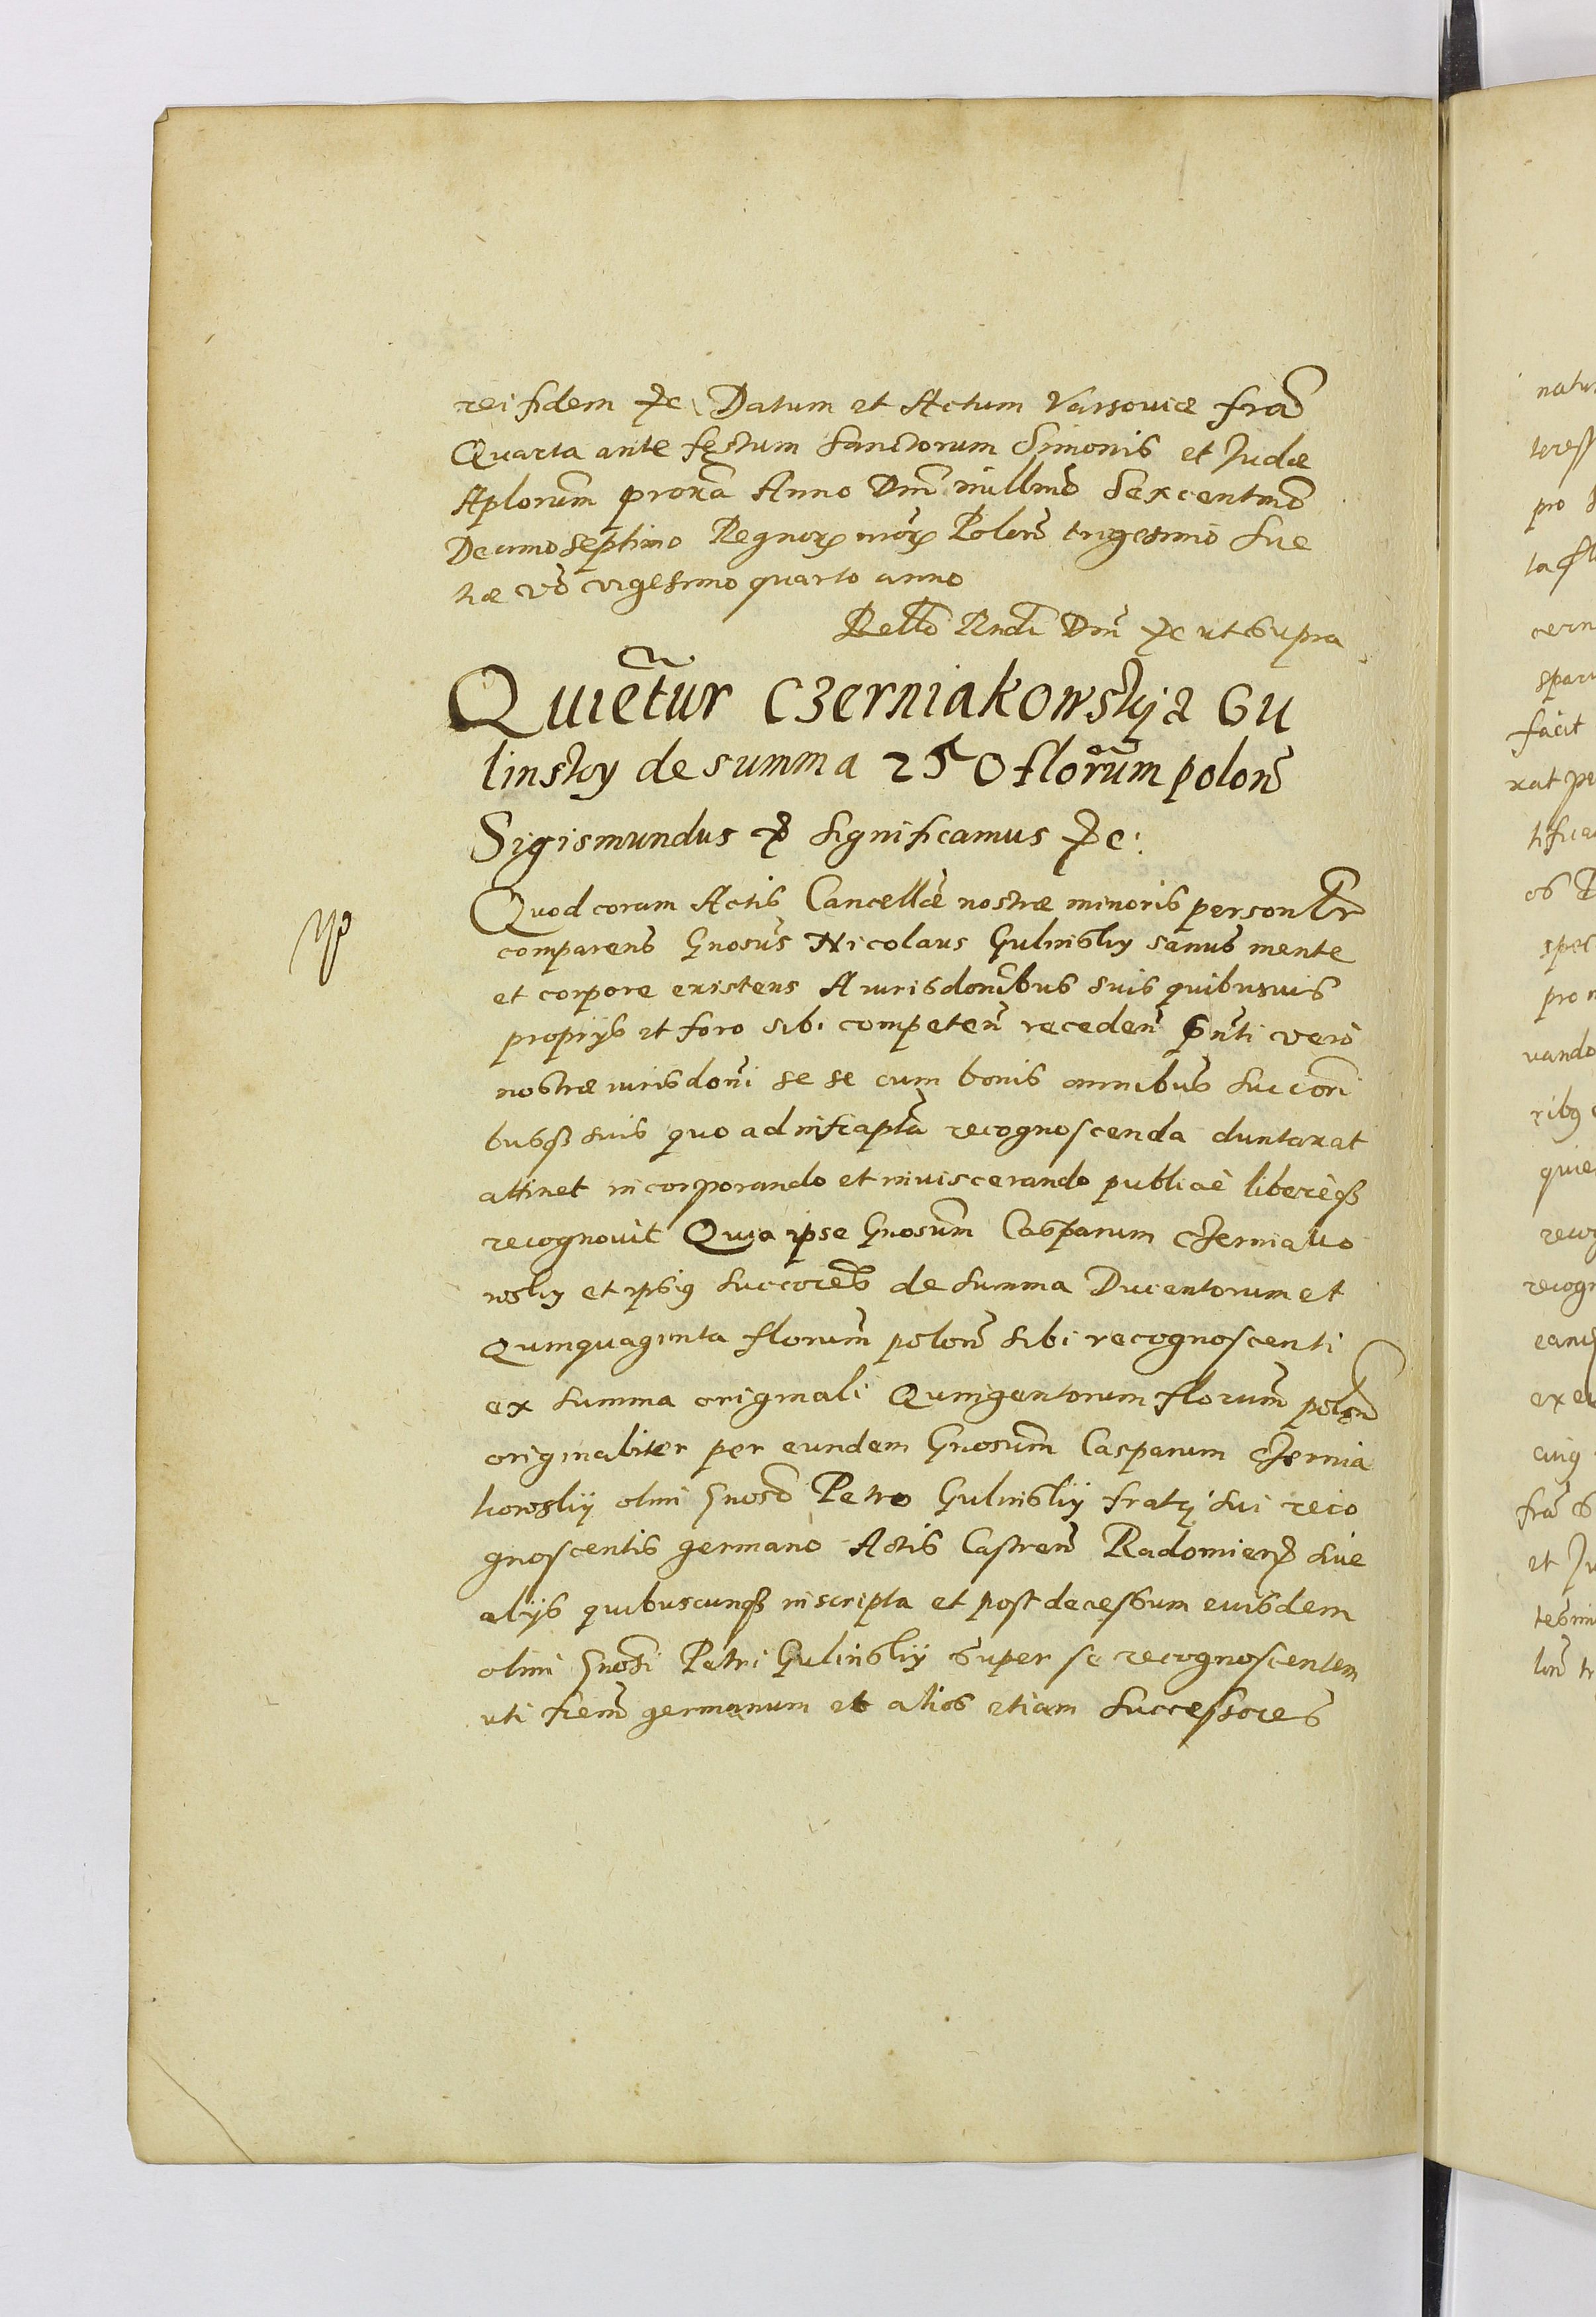 rei fidem etc Datum et Actum Varsoviæ fra
Quarta ante festum Sanctorum Simonis et Judæ
Aplorum proxa Anno Dni millmo Sexcentmo
Decimoseptimo Regnor nror Polon trigesimo Sue
tiæ vo vigesimo quarto anno
Rello Rndi Dni etc ut supra
Quietur Czerniakowsky a Gu
linsky de summa 250 florum polon
Sigismundus etc significamus etc:
Quod coram Actis Cancellæ nostræ minoris personlr
comparens Gnosus Nicolaus Gulinsky sanus mente
et corpore existens A iurisdonibus suis quibusuis
proprijs et foro sibi competen receden pnti vero
nostræ iurisdoni se se cum bonis omnibus succori
busq suis quo ad infrapta recognoscenda duntaxat
attinet incorporando et inviscerando publicè liberèq
recognovit Quia ipse Gnosum Casparum Czerniako
wsky et ipsius succores de summa Ducentorum et
Quinquaginta florum polon sibi recognoscenti
ex summa originali Quingentorum florum polon
originaliter per eundem Gnosum Casparum Czernia
kowsky olim Gnoso Petro Gulinsky fratri sui reco
gnoscentis germano Actis Castren Radomien siue
alijs quibuscunq inscripta et post decessum euisdem
olim Gnosi Petri Gulinsky super se recognoscentem
uti frem germanum et alios etiam successores